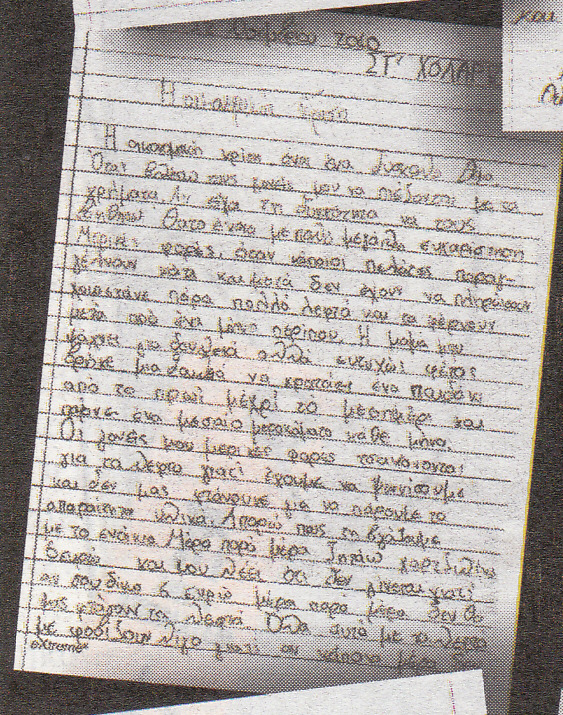 και
ΣΤ' ΧΟΛΑΡΓ
Η οικονομική κρίση
Η οικονομική κρίση είναι ένα δύσκολο θέμα.
τους γονείς μου να πιέζονται με τα
χρήματα. Αν είχα τη δυνατότητα να τους
βοηθήσω θα το έκανα με πολύ μεγάλη ευχαρίστηση
Μερικές φορές, όταν κάποιοι πελάτες παραγ-
γέλνουν κάτι και μετά δεν έχουν να πληρώσουν
χρωστάνε πάρα πολλά λεφτά και τα φέρνουν
μετά από ένα μήνα περίπου. Η μαμά μου
ψάχνει για δουλειά αλλά ευτυχώς φέτος
βρήκε μια να κρατάει ένα παιδάκι
από το πρωί μέχρι το μεσημέρι και
παίρνει ένα μεσαίο μεροκάματο κάθε μήνα.
Οι γονείς μου μερικές φορές τσακώνονται
για τα λεφτά γιατί έχουμε να ψωνίσουμε
και δεν μας φτάνουνε για να πάρουμε τα
απαραίτητα υλικά. Απορώ πως τη βγάζουμε
με το ενοίκιο. Μέρα παρά μέρα ζητάω χαρτζιλίκι
και μου λέει ότι δεν γίνεται γιατί
αν σου δίνω 5 ευρώ μέρα παρά μέρα δεν θα
μας φτάσουν τα λεφτά. Όλα αυτά με τα λεφτά
με φοβίζουν λίγο γιατί αν κάποια μέρα
eXtreme